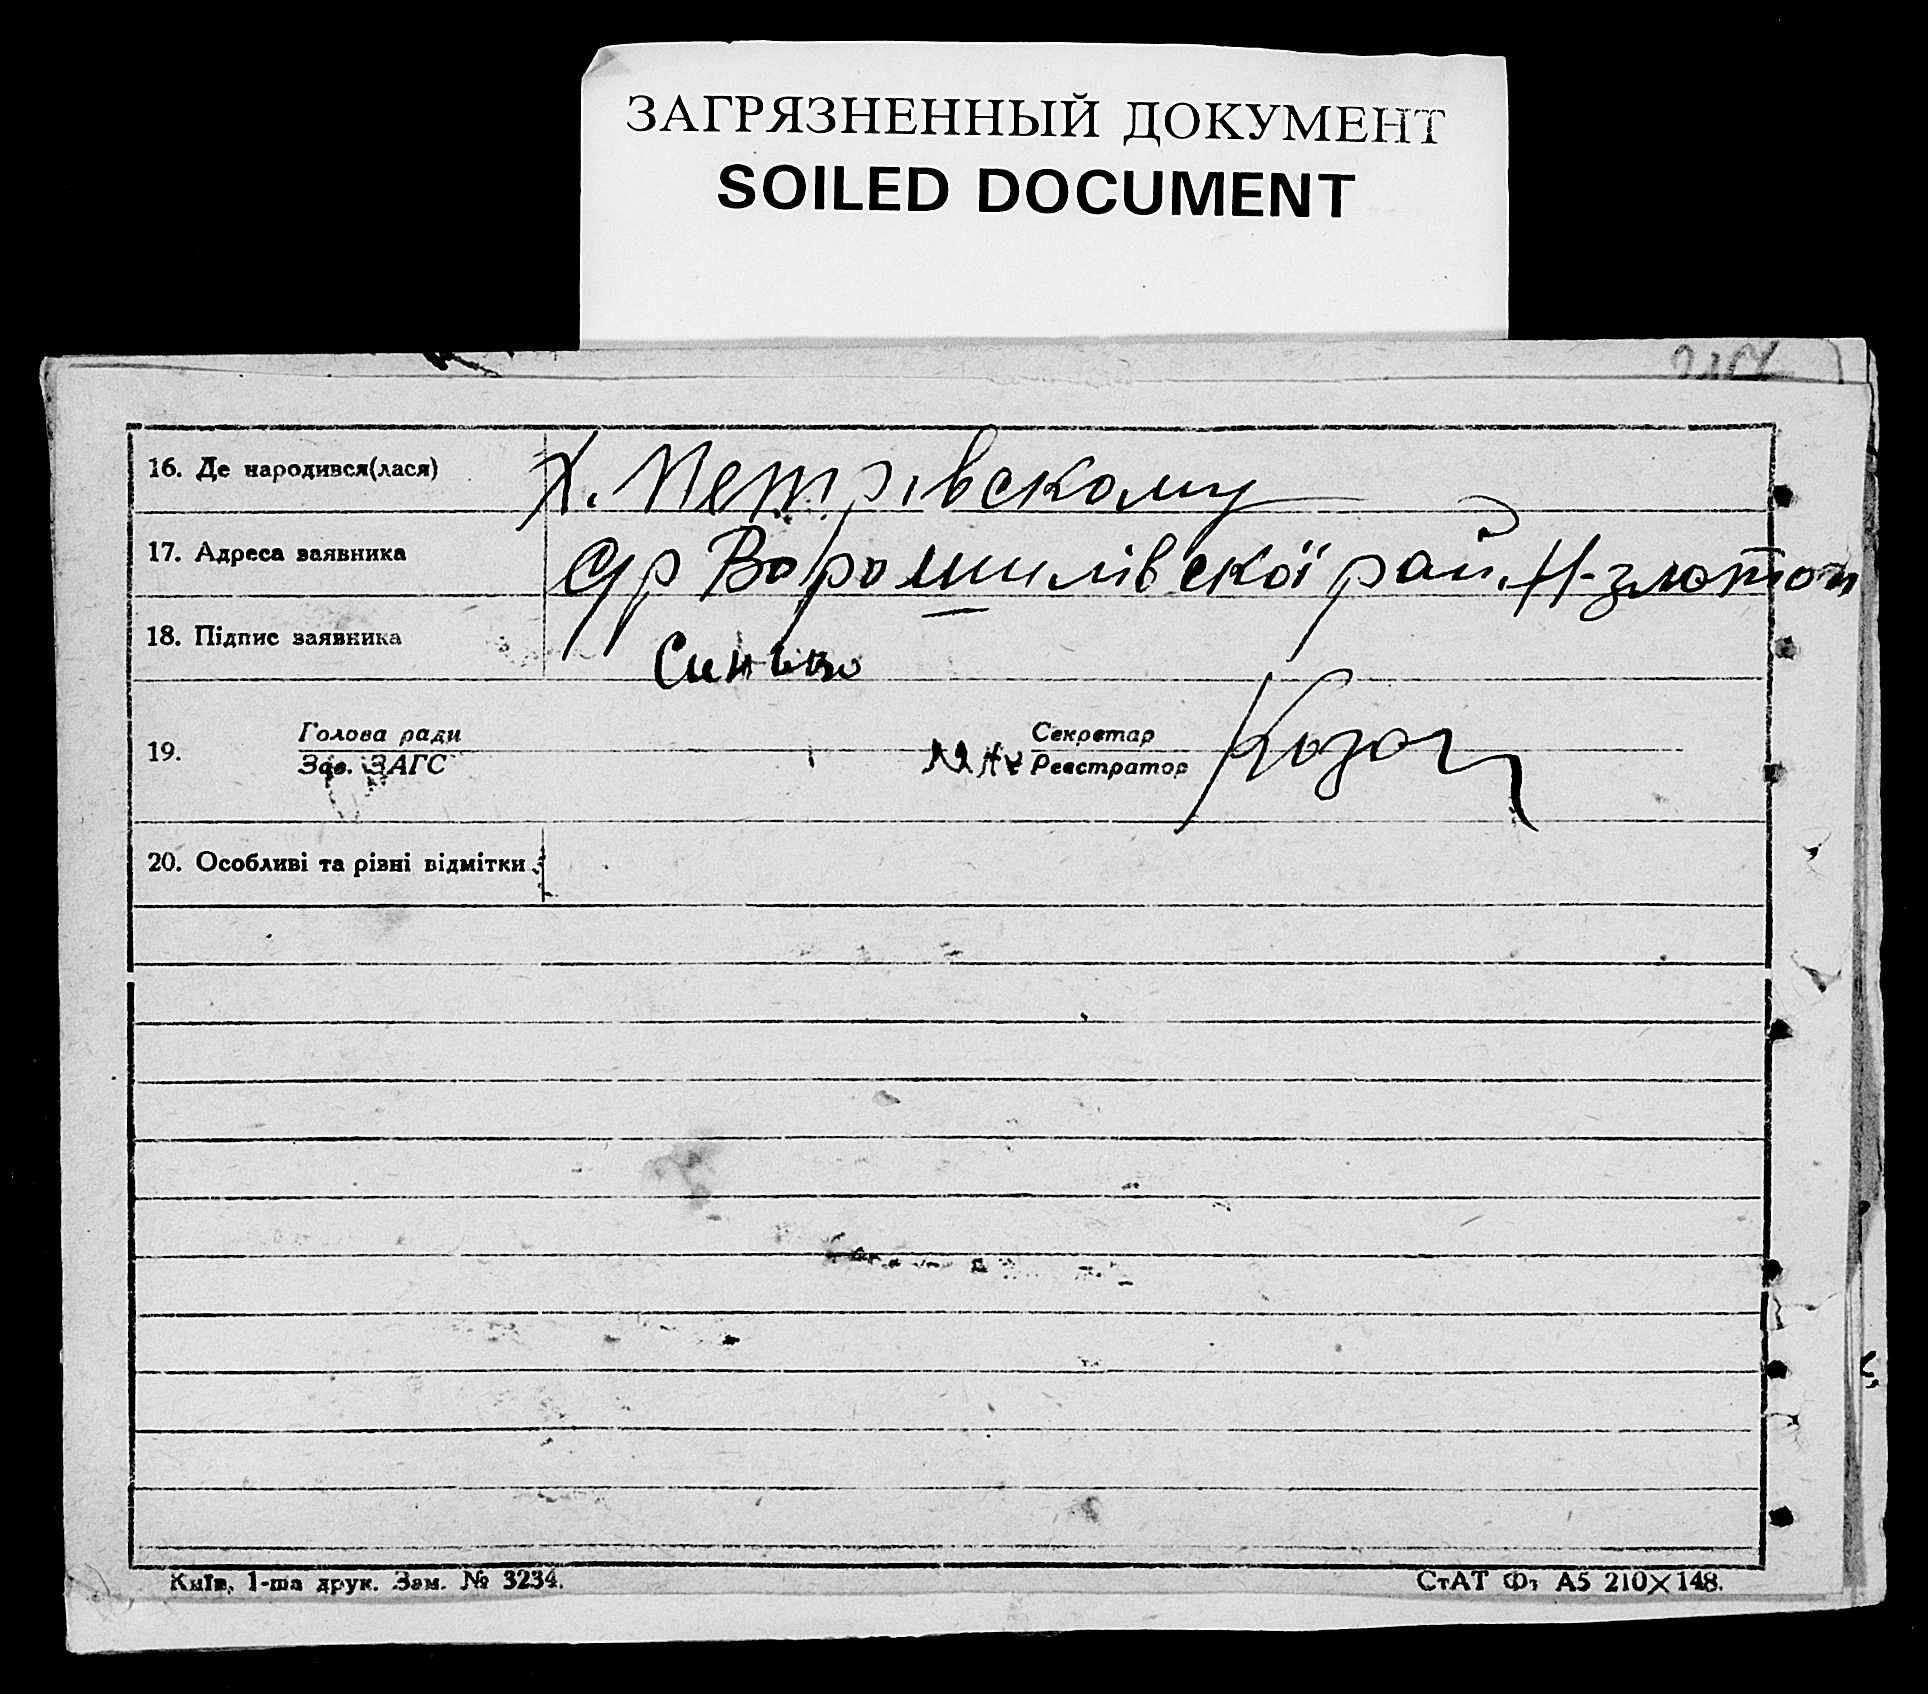 ЗАГРЯЗНЕННЫЙ ДОКУМЕНТ
SOILED DOCUMENT
16. Де народився(лася) Х. Петрівскому
17. Адреса заявника с/р Ворошилівскої рай. Н-злотоп
18. Підпис заявника Синько
19. Голова ради Секретар
Зав. ЗАГС Реєстратор
20. Особливі та різні відмітки
Київ, 1-ша друк. Зам. № 3234.
СтАТ Ф. А5 210×148.